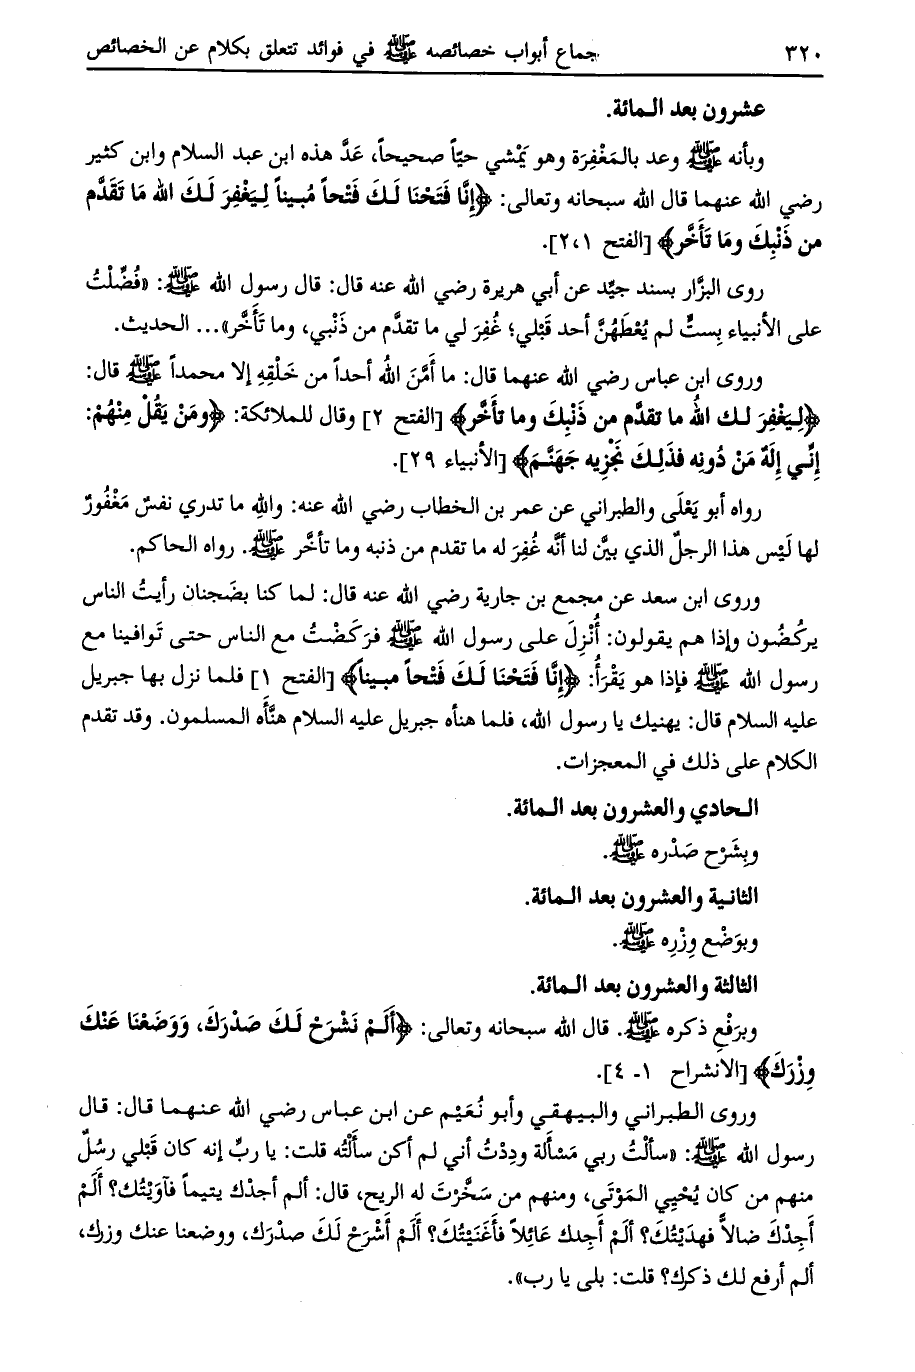 ٣٢٠ جماع أبواب خصائصه ﷺ في فوائد تتعلق بكلام عن الخصائص
عشرون بعد المائة.
وبأنه ﷺ وعد بالمَغْفِرَة وهو يَمْشي حيّاً صحيحاً، عَدَّ هذه ابن عبد السلام وابن كثير
رضي الله عنهما قال الله سبحانه وتعالى: ﴿إِنَّا فَتَحْنَا لَكَ فَتْحاً مُبيناً لِيَغْفِرَ لَكَ الله مَا تَقَدَّم
من ذَنْبِكَ ومَا تَأَخَّر﴾ [الفتح ٢،١].
روى البزَّار بسند جيِّد عن أبي هريرة رضي الله عنه قال: قال رسول الله ﷺ: «فُضِّلْتُ
على الأنبياء بِستٍّ لم يُعْطَهُنَّ أحد قَبْلي؛ غُفِرَ لي ما تقدَّم من ذَنْبي، وما تَأَخَّر»... الحديث.
وروى ابن عباس رضي الله عنهما قال: ما أَمَّنَ اللهُ أحداً من خَلْقِهِ إلا محمداً ﷺ قال:
﴿لِيَغْفِرَ لك اللهُ ما تقدَّم من ذَنْبِكَ وما تأخَّر﴾ [الفتح ٢] وقال للملائكة: ﴿ومَنْ يَقُلْ مِنْهُمْ:
إِنِّي إِلَهٌ مَنْ دُونِه فذَلِكَ نَجْزِيه جَهَنَّمَ﴾ [الأنبياء ٢٩].
رواه أبو يَعْلَى والطبراني عن عمر بن الخطاب رضي الله عنه: واللهِ ما تدري نفسٌ مَغْفُورٌ
لها لَيْس هذا الرجلُ الذي بيَّن لنا أنَّه غُفِرَ له ما تقدم من ذنبه وما تأخَّر ﷺ. رواه الحاكم.
وروى ابن سعد عن مجمع بن جارية رضي الله عنه قال: لما كنا بضَجنان رأيتُ الناس
يركُضُون وإذا هم يقولون: أُنْزِلَ على رسول الله ﷺ فرَكَضْتُ مع الناس حتى تَوافينا مع
رسول الله ﷺ فإذا هو يَقْرَأُ: ﴿إِنَّا فَتَحْنَا لَكَ فَتْحاً مبيناً﴾ [الفتح ١] فلما نزل بها جبريل
عليه السلام قال: يهنيك يا رسول الله، فلما هنأه جبريل عليه السلام هنَّأه المسلمون. وقد تقدم
الكلام على ذلك في المعجزات.
الحادي والعشرون بعد المائة.
وبِشَرْح صَدْره ﷺ.
الثانية والعشرون بعد المائة.
وبوَضْع وِزْرِه ﷺ.
الثالثة والعشرون بعد المائة.
وبرَفْعِ ذكره ﷺ. قال الله سبحانه وتعالى: ﴿أَلَمْ نَشْرَحْ لَكَ صَدْرَكَ، وَوَضَعْنَا عَنْكَ
وِزْرَكَ﴾ [الانشراح ١ـ ٤].
وروى الطبراني والبيهقي وأبو نُعَيْم عن ابن عباس رضي الله عنهما قال: قال
رسول الله ﷺ: «سألْتُ ربي مَسْألة ودِدْتُ أني لم أكن سألْتُه قلت: يا ربِّ إنه كان قَبْلي رسُلٌ
منهم من كان يُحْيِي المَوْتَى، ومنهم من سَخَّرْتَ له الريح، قال: ألم أجدْك يتيماً فآوَيْتُك؟ أَلَمْ
أَجِدْكَ ضالاًّ فهدَيْتُك؟ ألَمْ أَجِدك عَائِلاً فأَغْنَيْتُكَ؟ أَلَمْ أَشْرَحْ لَكَ صدرَك، ووضعنا عنك وزرك،
ألم أرفع لك ذكرك؟ قلت: بلى يا رب».